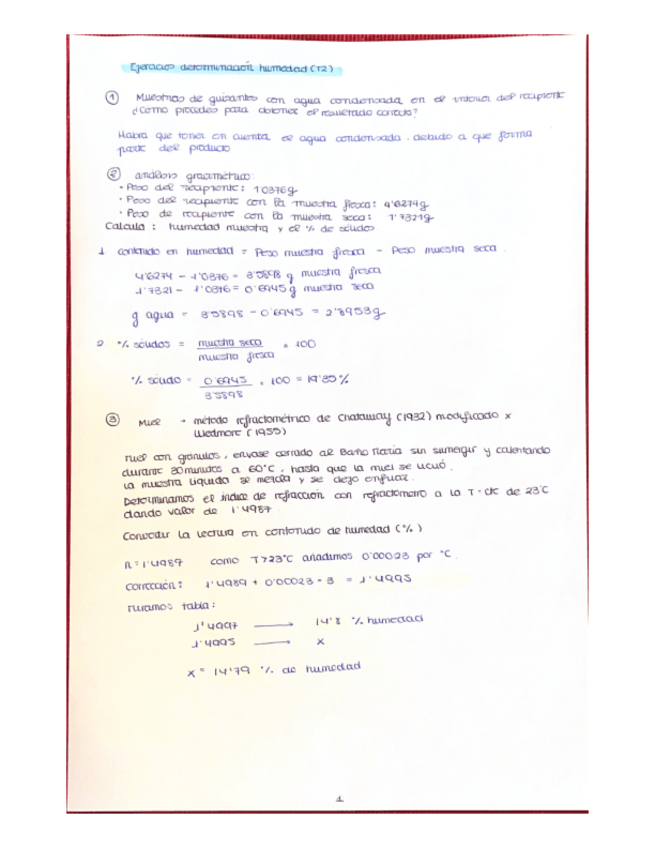 Ejercicios determinación humedad (T2)
① Muestras de guisantes con agua condensada en el interior del recipiente
¿Como procedes para obtener el resultado correcto?
Habrá que tener en cuenta el agua condensada debido a que forma
parte del producto
② análisis gravimétrico:
· Peso del recipiente: 1'0376g
· Peso del recipiente con la muestra fresca: 4'6274g
· Peso de recipiente con la muestra seca: 1'7321g
Calcula : humedad muestra y el % de sólidos
1 contenido en humedad = Peso muestra fresca - Peso muestra seca .
4'6274 - 1'0376 = 3'5898 g muestra fresca
1'7321 - 1'0376 = 0'6945 g muestra seca
g agua = 3'5898 - 0'6945 = 2'8953g
2 % sólidos = muestra seca / muestra fresca · 100
% sólido = 0'6945 / 3'5898 · 100 = 19'35 %
③ Miel → método refractométrico de Chataway (1932) modificado x
Wedmore (1955)
miel con gránulos, envase cerrado al Baño María sin sumergir y calentando
durante 30 minutos a 60°C, hasta que la miel se licuó.
la muestra líquida se mezcla y se dejo enfriar.
Determinamos el índice de refracción con refractómetro a la T = cte de 23°C
dando valor de 1'4987
Convertir la lectura en contenido de humedad (%)
n = 1'4987 como T>23°C añadimos 0'00023 por °C.
corrección: 1'4989 + 0'00023 · 3 = 1'4995
miramos tabla:
1'4997 → 14'8 % humedad
1'4995 → x
x = 14'79 % de humedad
1